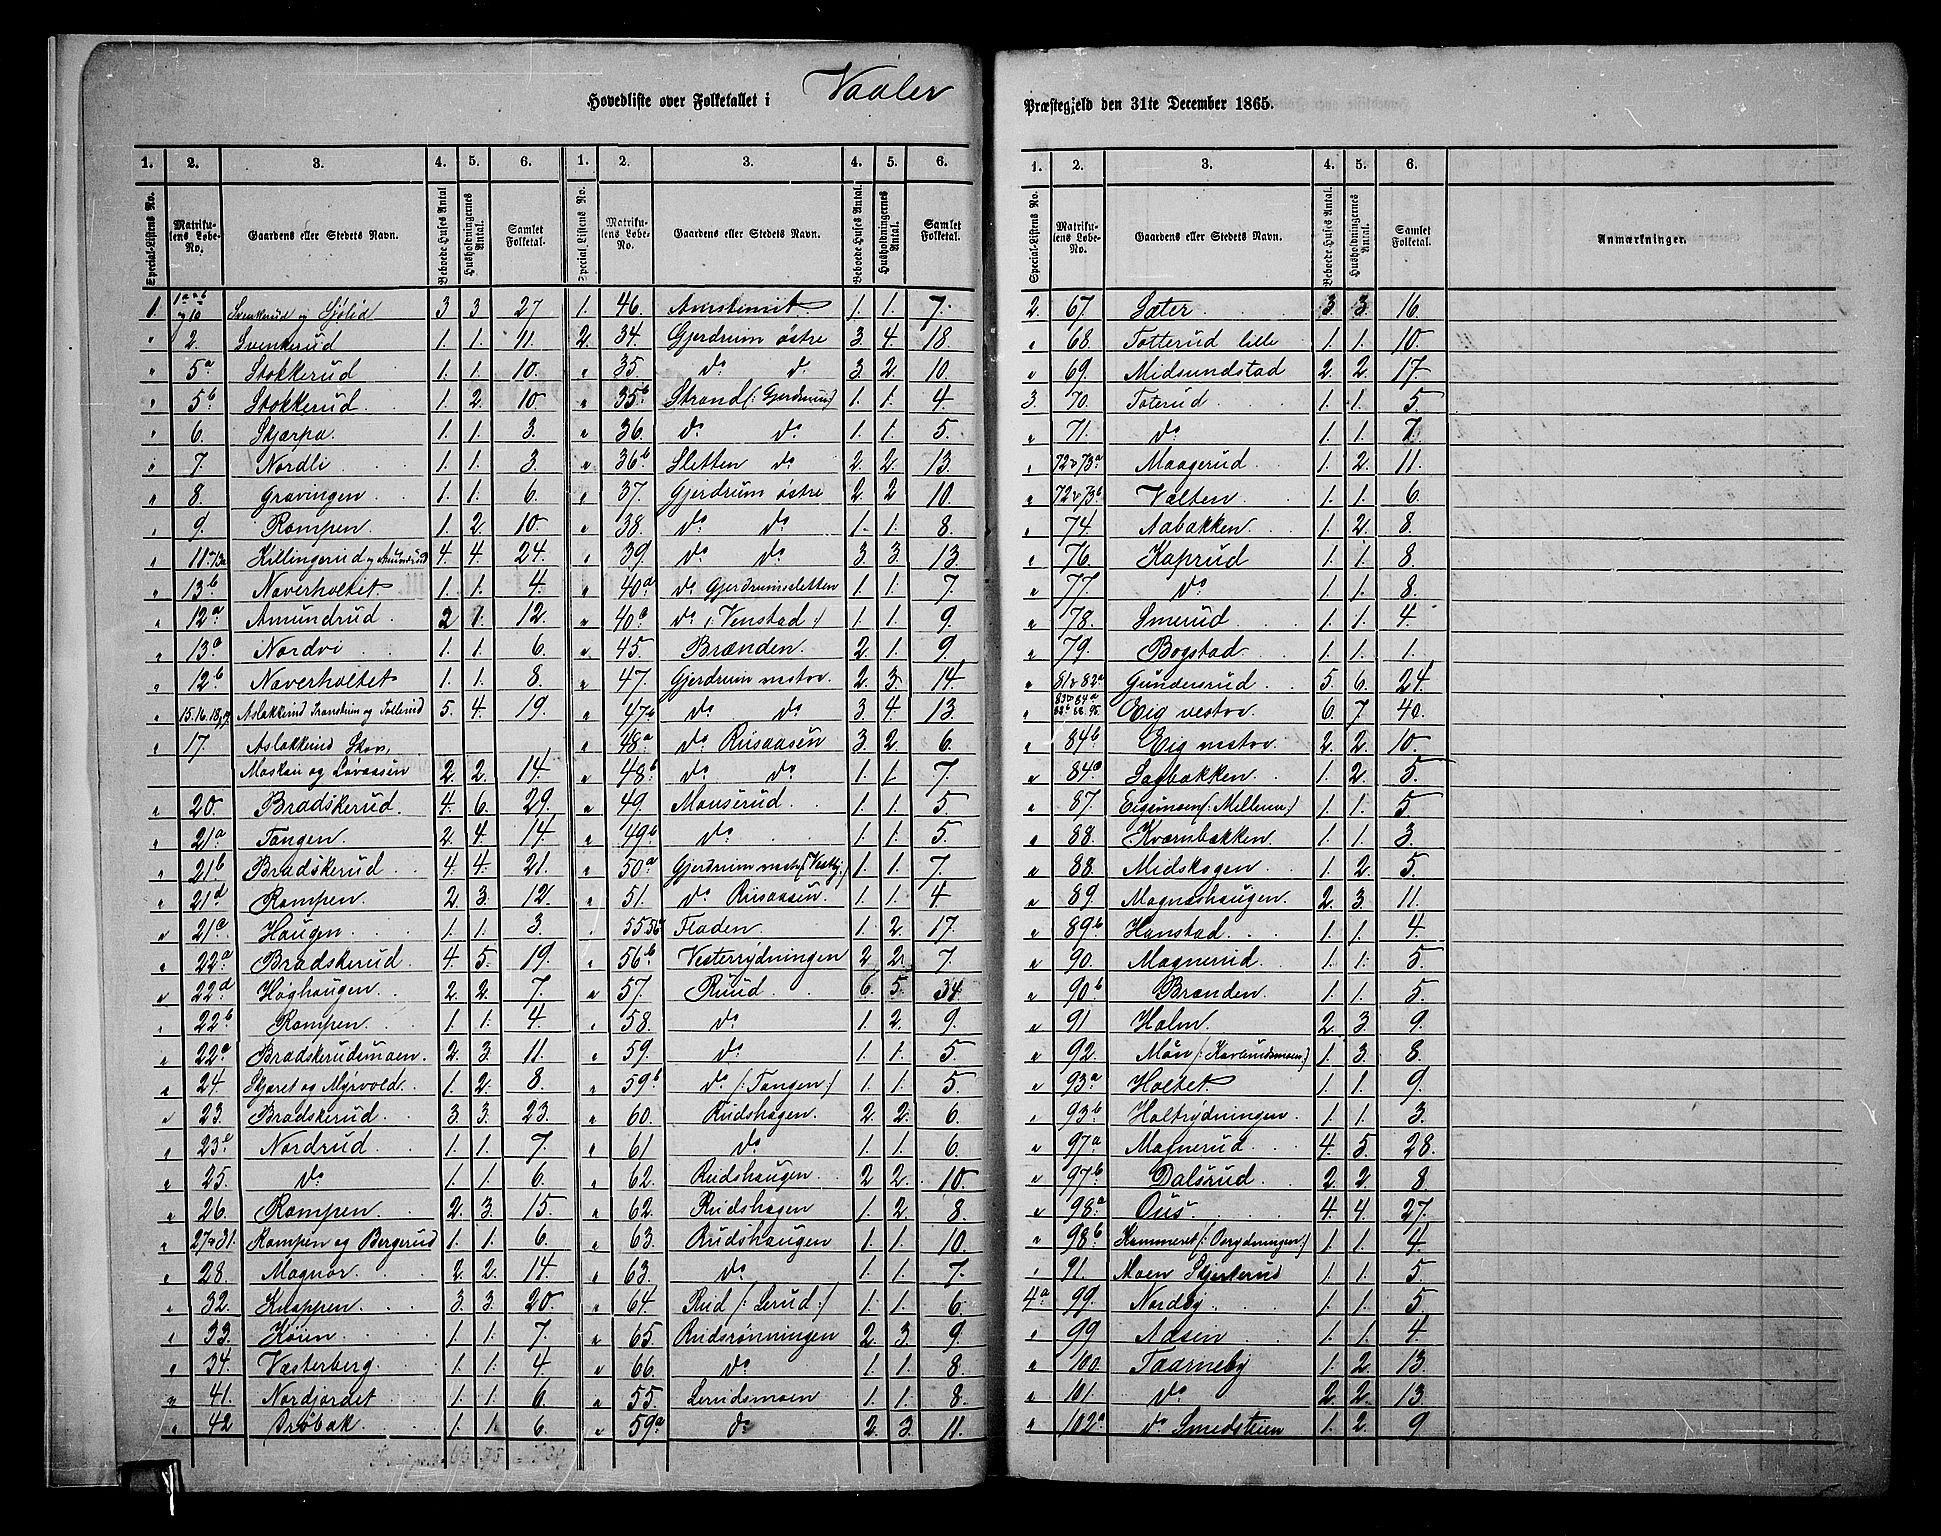 Hovedliste over Folketallet i Vaaler Præstegjeld den 31te December 1865.
1. 2. 3. 4. 5. 6. 1. 2. 3. 4. 5. 6.
Special-Listens No. Matrikulens Løbe-No. Gaardens eller Stedets Navn. Beboede Huses Antal Husholdningernes Antal. Samlet Folketal. Special-Listens No. Matrikulens Løbe-No. Gaardens eller Stedets Navn. Beboede Huses Antal. Husholdningernes Antal. Samlet Folketal.
1. Svenkerud og Sjølid 3 3 27 1. 46. 1. 1. 7.
" 2. Svenkerud 1. 1. 11. 2. 34. Gjerdrum østre 3. 4. 18.
" 5a Stokkerud 1. 1. 10. " 35 do do 3. 2. 10.
" 5b Stokkerud. 1. 2. 10. " 35b Strand (: Gjerdrum) 1. 1. 4.
" 6. Skjærpa. 1. 1. 3. " 36. do do 1. 1. 5.
" 7. Nordli 1. 1. 3. " 36b Sletten do 2. 2. 13.
" 8. Gravingen 1. 1. 6. " 37. Gjerdrum østre 2. 2 10.
" 9. Rompen 1. 2. 10. " 38. do do 1. 1. 8.
" 11 13a Killingerud og Amundrud 4. 4. 24. " 39. do do 3. 3. 13.
" 13b Naverholtet 1. 1. 4. " 40a do Gjerdrumssletten 1. 1. 7.
" 12a Amundrud 2 1. 12. " 40a do (: Venstad :) 1. 1. 9.
" 13a Nordvi 1. 1. 6. " 45. Brænden 2. 1. 9
" 12b Naverholtet 1. 1. 8. " 47. Gjerdrum vestre 2. 3. 14.
" 15.16.18,19 Aslakkerud Transtrum og Tollerud 5. 4. 19. " 47b do do 3. 4. 13.
" 17. Aslakkerud Skov, " 48a do Riisaasen 3. 2. 6.
Moskau og Løvaasen 2. 2. 14. " 48b do do 1. 1. 7.
" 20. Bradskerud. 4. 6. 29. " 49. Monserud. 1. 1. 5.
" 21a Tangen. 2. 4. 14. " 49b do 1. 1. 5.
" 21b Bradskerud. 4. 4. 21. " 50a Gjerdrum vestre (: Vestby :) 1. 1. 7.
" 21d Rompen. 2. 3. 12. " 51. do Riisaasen. 1. 1. 4
" 21e Haugen. 1. 1. 3. 55 56 Fladen 1. 2. 17.
" 22a Bradskerud. 4. 5. 19. " 56b Vesterrydningen 2 2. 7.
" 22d Høghaugen. 2. 2. 7. " 57. Ruud 6. 5. 34.
" 22b Rompen. 1. 1. 4. " 58. do 1. 2. 9.
" 22a Bradskerudsmoen. 2. 3. 11. " 59. do 1. 1. 5.
" 24. Skjæret og Myrvold. 1. 2. 8. " 59b do (: Tangen :) 1. 1. 5
" 23. Bradskerud. 3. 3. 23. " 60. Rudshagen. 2. 2. 6.
" 23a Nordrud 1. 1. 7. " 61 do 1. 1. 6.
" 25. do 1. 1. 6. " 62. Rudshaugen 2 2. 10.
" 26. Rompen 2. 3. 15. " 62. Rudshagen 1. 2. 8.
" 27 31. Rompen og Bergerud 1. 1. 6. " 63. Rudshaugen 1. 1. 10.
" 28. Magnor. 2. 2. 14. " 63. do 1. 1. 7.
" 32. Knappen. 3. 3. 20. " 64. Rud (: Lerud :) 1. 1. 6.
" 33. Koien. 1. 1. 7. " 65. Rudsrønningen 2. 3. 9.
" 34. Vesterberg. 1. 1. 4. " 66. do 1. 1. 8.
" 41. Nordjordet 1. 1. 6. " 55. Lerudsmoen 1. 1. 8.
" 42 Arøbak 1. 1. 6. " 59a do 2. 3. 11.
1. 2. 3. 4. 5. 6.
Special-Listens No. Matrikulens Løbe-No. Gaardens eller Stedets Navn. Beboede Huses Antal. Husholdningernes Antal. Samlet Folketal. Anmærkninger.
2. 67. Sæter 3. 3. 16.
" 68. Totterud lille 1. 1. 10.
" 69. Midsundstad 2. 2. 17.
3. 70. Toterud 1. 1. 5.
" 71. do 1. 1. 7.
" 72 73a Maagerud 1. 2. 11.
" 72 73b Vålten. 1. 1. 6.
" 74. Aabakken. 1. 2. 8.
" 76. Kaprud 1. 1. 8.
" 77. do 1. 1. 8.
" 78. Smerud 1. 1. 4.
" 79. Bogstad. 1. 1. 1.
" 81 82a Gundersrud 5. 6. 24.
" 83 84a Eig vestre 6. 7. 40.
" 84b Eig vestre 2. 2. 10.
" 84a Sagbakken. 1. 2. 5.
" 87. Eigsmoen (: Mellem :) 1. 1. 5
" 88. Kværnbakken. 1. 1. 3.
" 88. Midskogen 1. 2. 5.
" 89. Magnæshaugen. 2. 3. 11.
" 89b Hanstad. 1. 1. 4.
" 90. Magnerud. 1. 1. 5.
" 90b Brænden. 1. 1. 5.
" 91 Holm. 2. 3. 9.
" 92. Moen (: Karlsrudsmoen :) 1. 3. 8.
" 93a Holtet 1. 1. 9.
" 93b Holtrydningen. 1. 1. 3.
" 97a Magnerud. 4. 5. 28.
" 97b Dalsrud. 2. 2. 8
" 98a Ous 4. 4. 27.
" 98b Kammeret (: Osrydningen :) 1. 1. 4.
" 91. Moen Skjeeterud 1. 1. 5.
4a 99. Nordby. 1. 1. 5.
" 99 Aasen 1. 1. 4.
" 100 Taarneby 1. 2. 13
" 101. do 2. 2. 13.
" 102a do Smedsteien 1. 2. 9